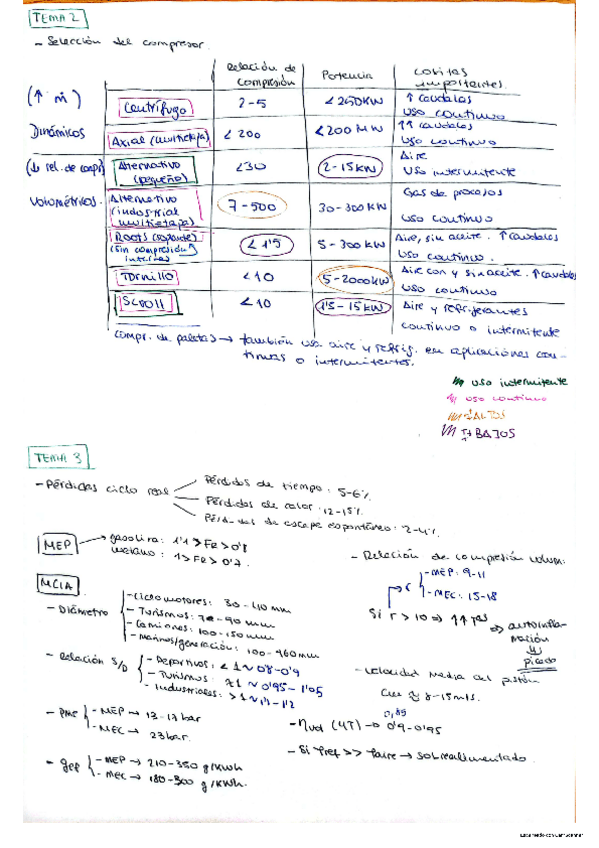 TEMA 2
- Selección del compresor.
Relación de compresión
Potencia
cositas importantes.
(↑ ṁ)
Dinámicos
Centrífugo
2-5
<250KW
↑ caudales
uso continuo
Axial (multietapa)
<200
<200 MW
↑↑ caudales
uso continuo
(↓ rel. de compr)
Volumétricos.
Alternativo (pequeño)
<30
2-15KW
Aire
uso intermitente
Alternativo (industrial multietapa)
7-500
30-300KW
Gas de procesos
uso continuo
Roots (soplante) (sin compresión interna)
<1'5
5-300 KW
Aire, sin aceite. ↑caudales
uso continuo.
Tornillo
<10
5-2000KW
Aire con y sin aceite. ↑caudales
uso continuo
Scroll
<10
1'5-15KW
Aire y refrigerantes
continuo o intermitente
compr. de paletas → también usa aire y refrig. en aplicaciones con-
tinuas o intermitentes.
uso intermitente
uso continuo
+ ALTOS
+ BAJOS
TEMA 3
- Pérdidas ciclo real
Pérdidas de tiempo: 5-6%
Pérdidas de calor: 12-15%
Pérdidas de escape espontáneo: 2-4%
MEP
gasolina: 1'1 > FR > 0'8
metano: 1 > FR > 0'7.
MCIA
- Diámetro
- Ciclomotores: 30-40 mm
- Turismos: 70-90 mm
- Camiones: 100-150 mm
- Marinos/generación: 100-960 mm
- Relación S/D
- Deportivos: <1 ~ 0'8-0'9
- Turismos: ~ 0'95-1'05
- Industriales: >1 ~ 1'1-1'2
- pme
- MEP → 13-17 bar
- MEC → 23 bar.
- gef
- MEP → 210-350 g/kWh
- MEC → 180-300 g/kWh.
- Relación de compresión volum:
r
- MEP: 9-11
- MEC: 15-18
Si r > 10 ⇒ ↑↑ ⇒ autoinfla-
mación
y
picado
- Velocidad media del pistón
≈ 8-15 m/s.
0,85
- (4T) → 0'9-0'95
- Si Pref >> Paire → sobrealimentado.